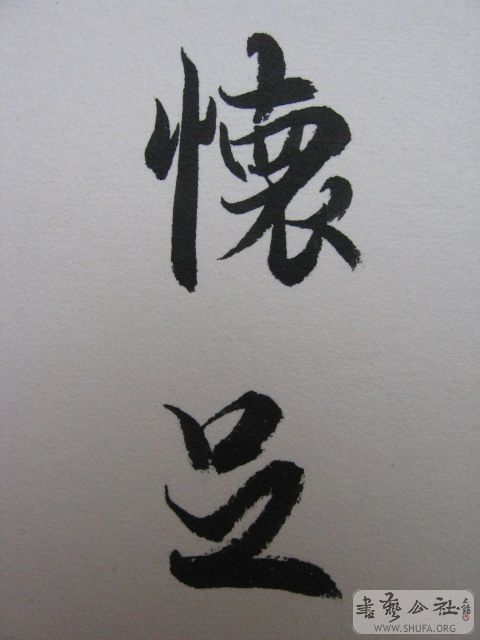 懷
足
書藝公社
WWW.SHUFA.ORG